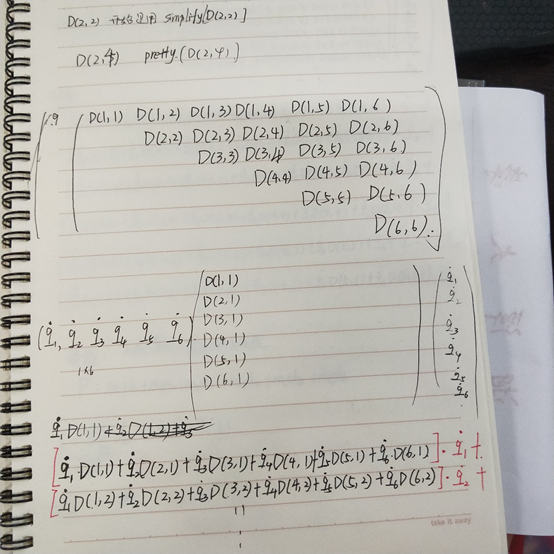 D(2,2) 开始运用 simplify[D(2,2)]
D(2,4) pretty.(D(2,4)]
D(1,1) D(1,2) D(1,3) D(1,4) D(1,5) D(1,6)
D(2,2) D(2,3) D(2,4) D(2,5) D(2,6)
D(3,3) D(3,4) D(3,5) D(3,6)
D(4,4) D(4,5) D(4,6)
D(5,5) D(5,6)
D(6,6)
(q̇₁, q̇₂ q̇₃ q̇₄ q̇₅ q̇₆)
1×6
D(1,1)
D(2,1)
D(3,1)
D(4,1)
D(5,1)
D(6,1)
q̇₁
q̇₂
q̇₃
q̇₄
q̇₅
q̇₆
q̇₁D(1,1)+q̇₂D(1,2)+q̇₃
[q̇₁·D(1,1)+q̇₂D(2,1)+q̇₃D(3,1)+q̇₄D(4,1)+q̇₅D(5,1)+q̇₆·D(6,1)]·q̇₁+
[q̇₁D(1,2)+q̇₂D(2,2)+q̇₃D(3,2)+q̇₄D(4,2)+q̇₅D(5,2)+q̇₆D(6,2)]·q̇₂+
take it away